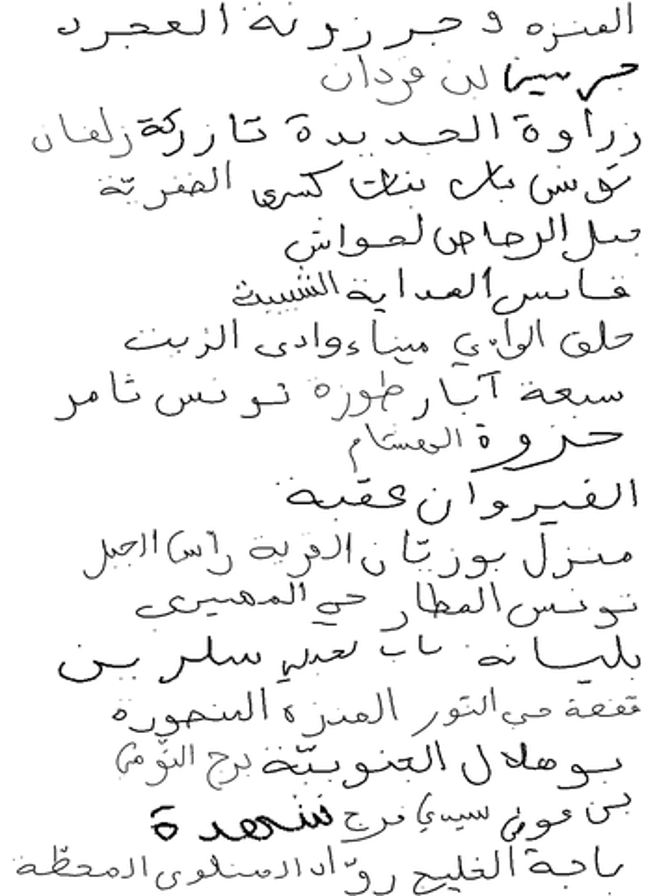 المنزه و جرزونة العجرد
جرسين بن قردان
زراوة الجديدة تازركة زلفان
تونس باب بنات كسرى الضفرية
جبل الرصاص لحواش
قابس الهداية الشبيبت
حلق الوادي ميناء وادي الزيت
سبعة آبار طوزة تونس ثامر
حزوة الهشام
القيروان عقبة
منزل بوزيان القرية رأس الجبل
تونس المطار حي المهيري
بليانة باب سلر بن
قفصة حي النور المنزه المنصورة
بوهلال الجنوبية برج التومي
بن عون سيدي فرج شهدة
باجة الخليج روّاد المتلوي المحطّة